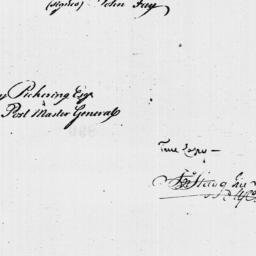 (Signed) John Fay
Pickering Esqr
Post Master General
True Copy —